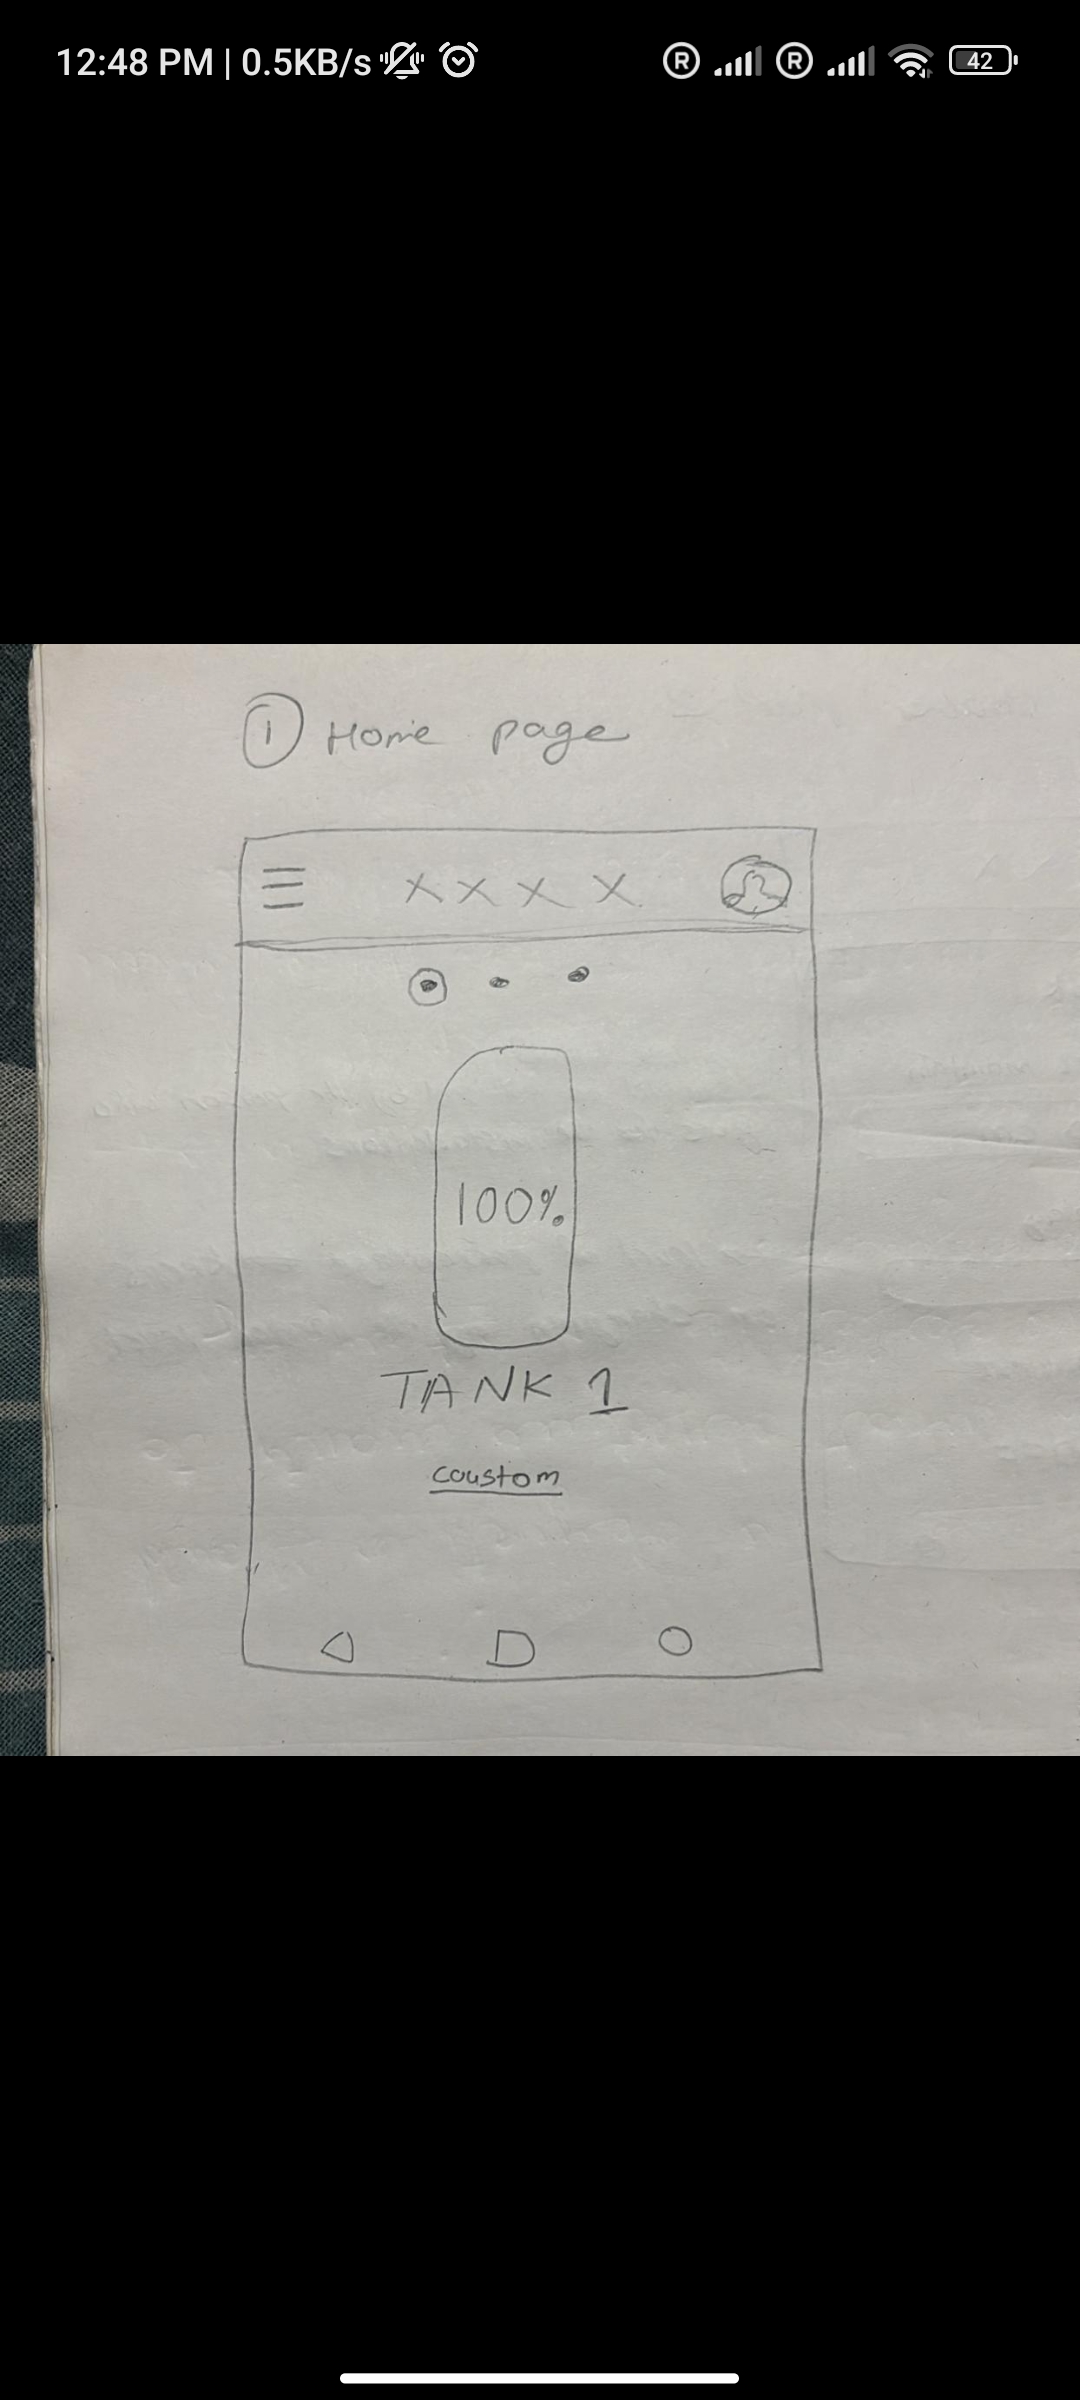 12:48 PM | 0.5KB/s
R R 42
1 Home page
X X X X
100%
TANK 1
coustom